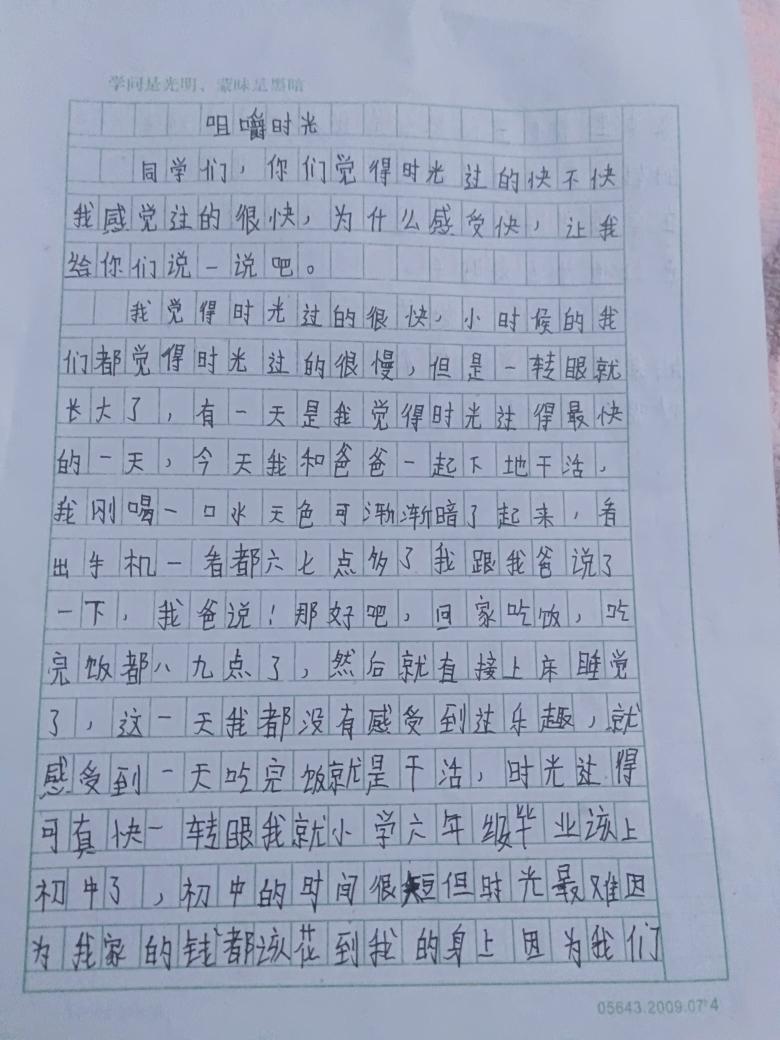 学问是光明，蒙昧是黑暗
咀嚼时光
同学们，你们觉得时光过的快不快
我感觉过的很快，为什么感受快，让我
给你们说一说吧。
我觉得时光过的很快，小时候的我
们都觉得时光过的很慢，但是一转眼就
长大了，有一天是我觉得时光过得最快
的一天，今天我和爸爸一起下地干活，
我刚喝一口水天色可渐渐暗了起来，看
出手机一看都六七点多了我跟我爸说了
一下，我爸说！那好吧，回家吃饭，吃
完饭都八九点了，然后就直接上床睡觉
了，这一天我都没有感受到过乐趣，就
感受到一天吃完饭就是干活，时光过得
可真快一转眼我就小学六年级毕业该上
初中了，初中的时间很短但时光最难因
为我家的钱都该花到我的身上因为我们
05643.2009.07 4